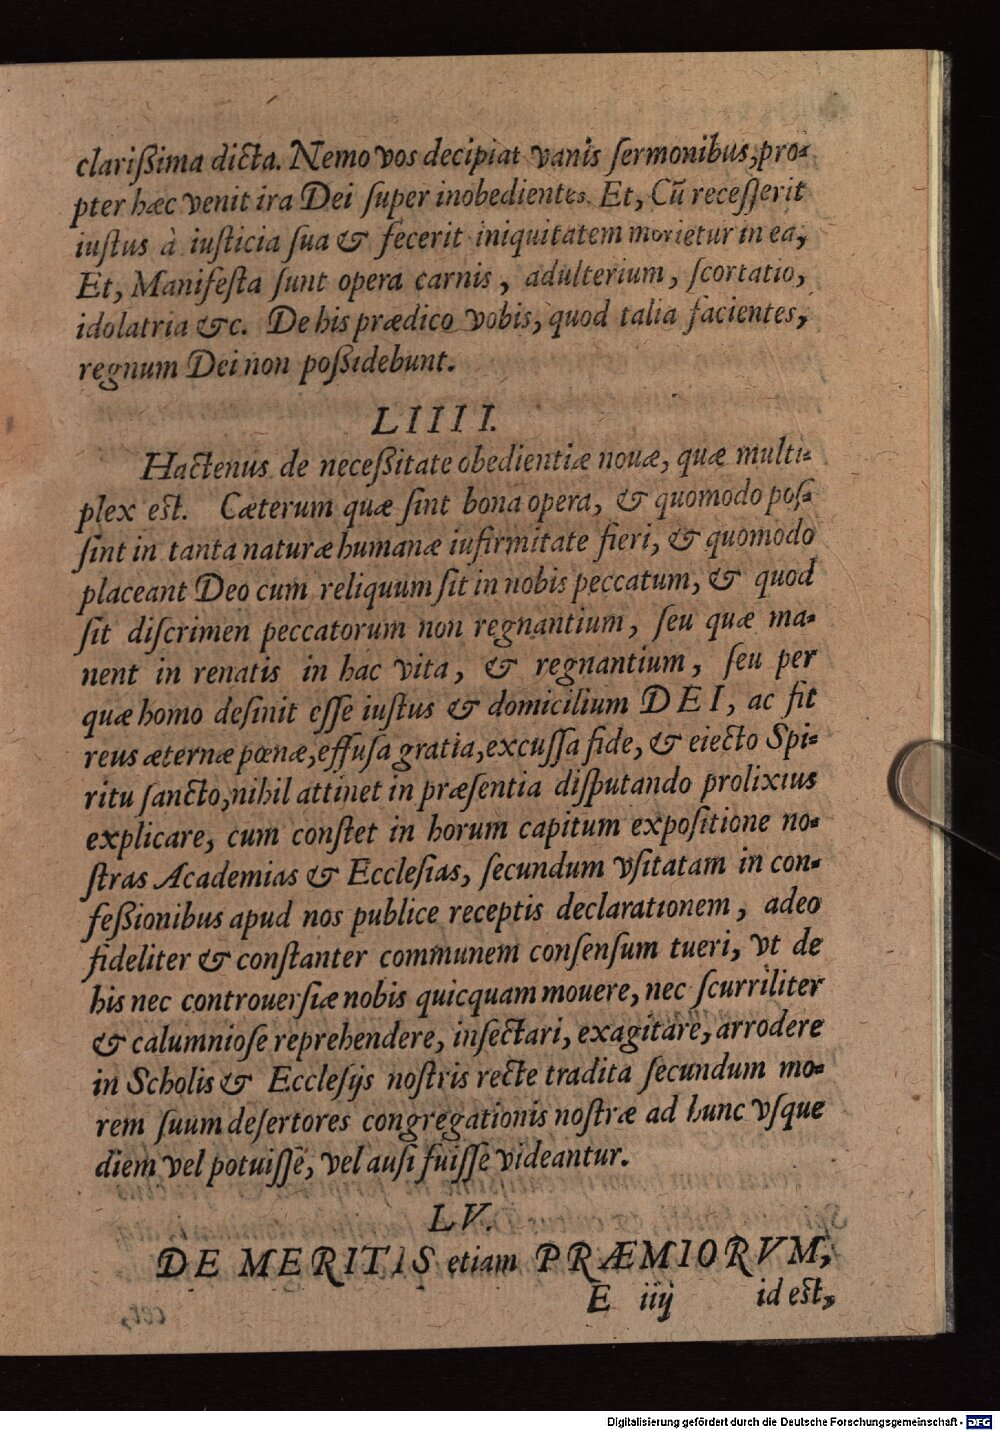 clariſsima dicta. Nemo vos decipiat vanis ſermonibus, pro-
pter hæc venit ira Dei ſuper inobedientes. Et, Cũ receſſerit
iuſtus à iuſticia ſua & fecerit iniquitatem morietur in ea,
Et, Manifeſta ſunt opera carnis, adulterium, ſcortatio,
idolatria &c. De his prædico vobis, quod talia facientes,
regnum Dei non poſsidebunt.
LIIII.
Hactenus de neceſsitate obedientiæ nouæ, quæ multi-
plex est. Cæterum quæ ſint bona opera, & quomodo poſ-
ſint in tanta naturæ humanæ iufirmitate fieri, & quomodo
placeant Deo cum reliquum ſit in nobis peccatum, & quod
ſit diſcrimen peccatorum non regnantium, ſeu quæ ma-
nent in renatis in hac vita, & regnantium, ſeu per
quæ homo deſinit eſſe iuſtus & domicilium DEI, ac fit
reus æternæ pœnæ, effuſa gratia, excuſſa fide, & eiecto Spi-
ritu ſancto, nihil attinet in præſentia diſputando prolixius
explicare, cum conſtet in horum capitum expoſitione no-
ſtras Academias & Eccleſias, ſecundum vſitatam in con-
feſsionibus apud nos publice receptis declarationem, adeo
fideliter & conſtanter communem conſenſum tueri, vt de
his nec controuerſiæ nobis quicquam mouere, nec ſcurriliter
& calumnioſe reprehendere, inſectari, exagitare, arrodere
in Scholis & Eccleſijs noſtris recte tradita ſecundum mo-
rem ſuum deſertores congregationis noſtræ ad hunc vſque
diem vel potuiſſe, vel auſi fuiſſe videantur.
LV.
DE MERITIS etiam PRÆMIORVM,
E iiij id est,
Digitalisierung gefördert durch die Deutsche Forschungsgemeinschaft - DFG